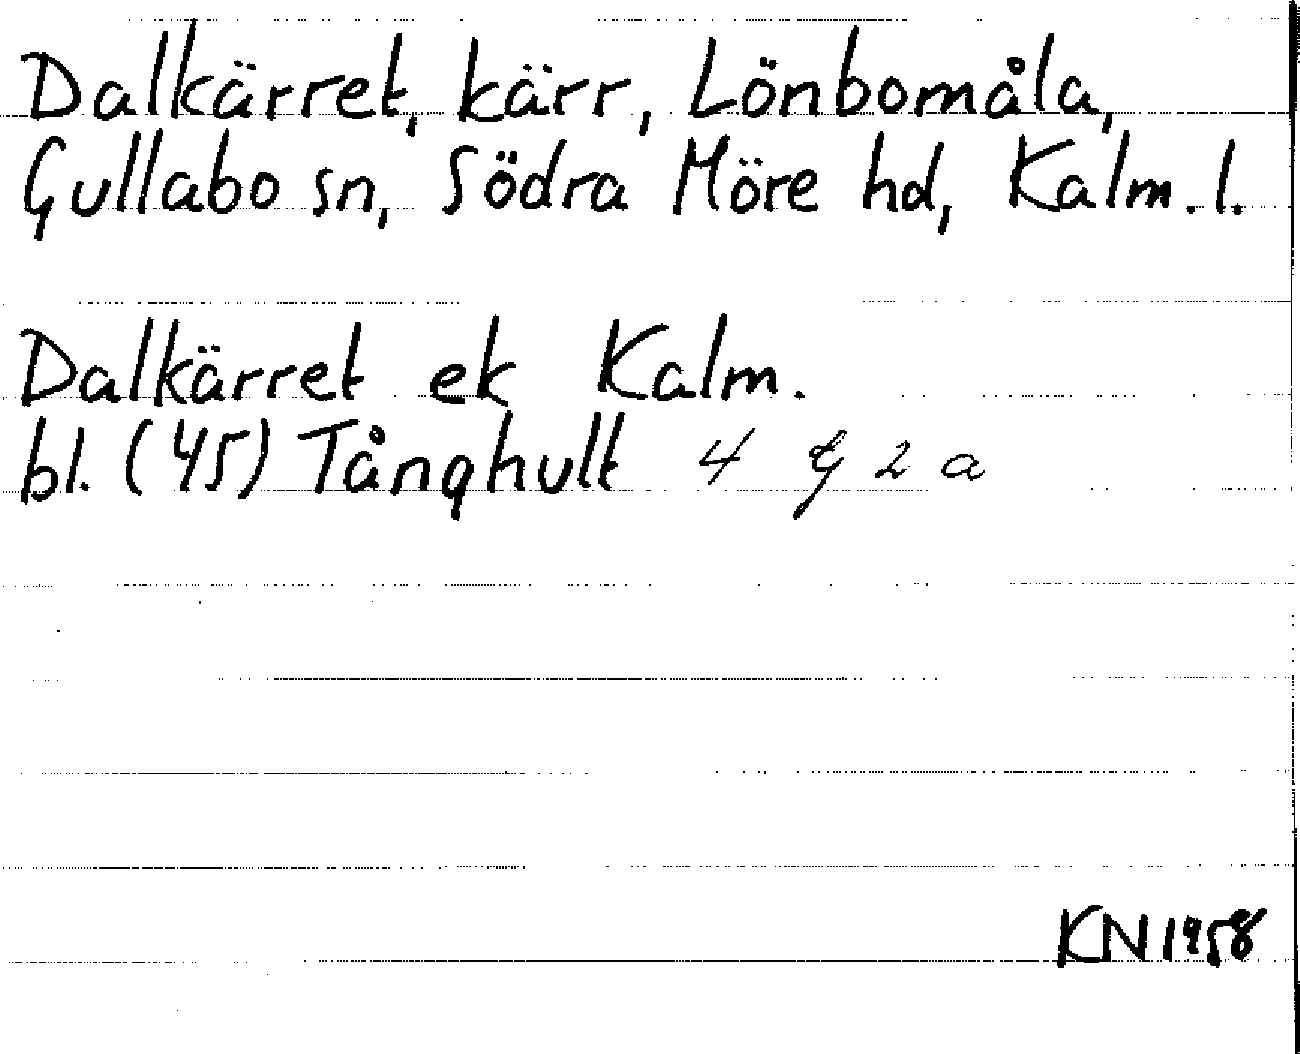 Dalkärret, kärr, Lönbomåla,
Gullabo sn, Södra Möre hd, Kalm. l.
Dalkärret ek Kalm.
bl. (45) Tånghult 4 G 2 a
KN 1958